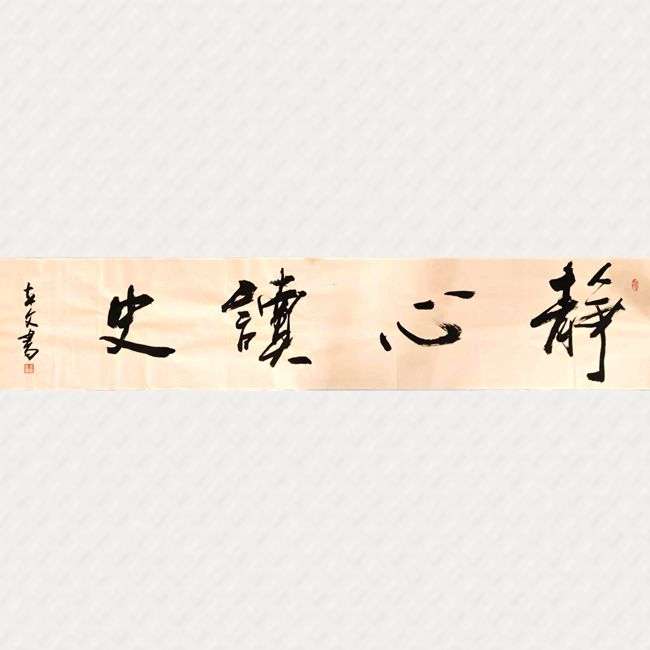 靜心讀史
文書